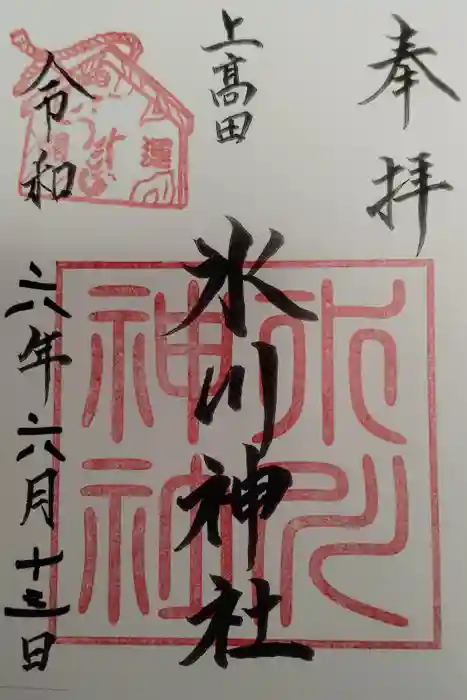 奉拝
上髙田
氷川神社
令和六年六月十三日
氷川
神社